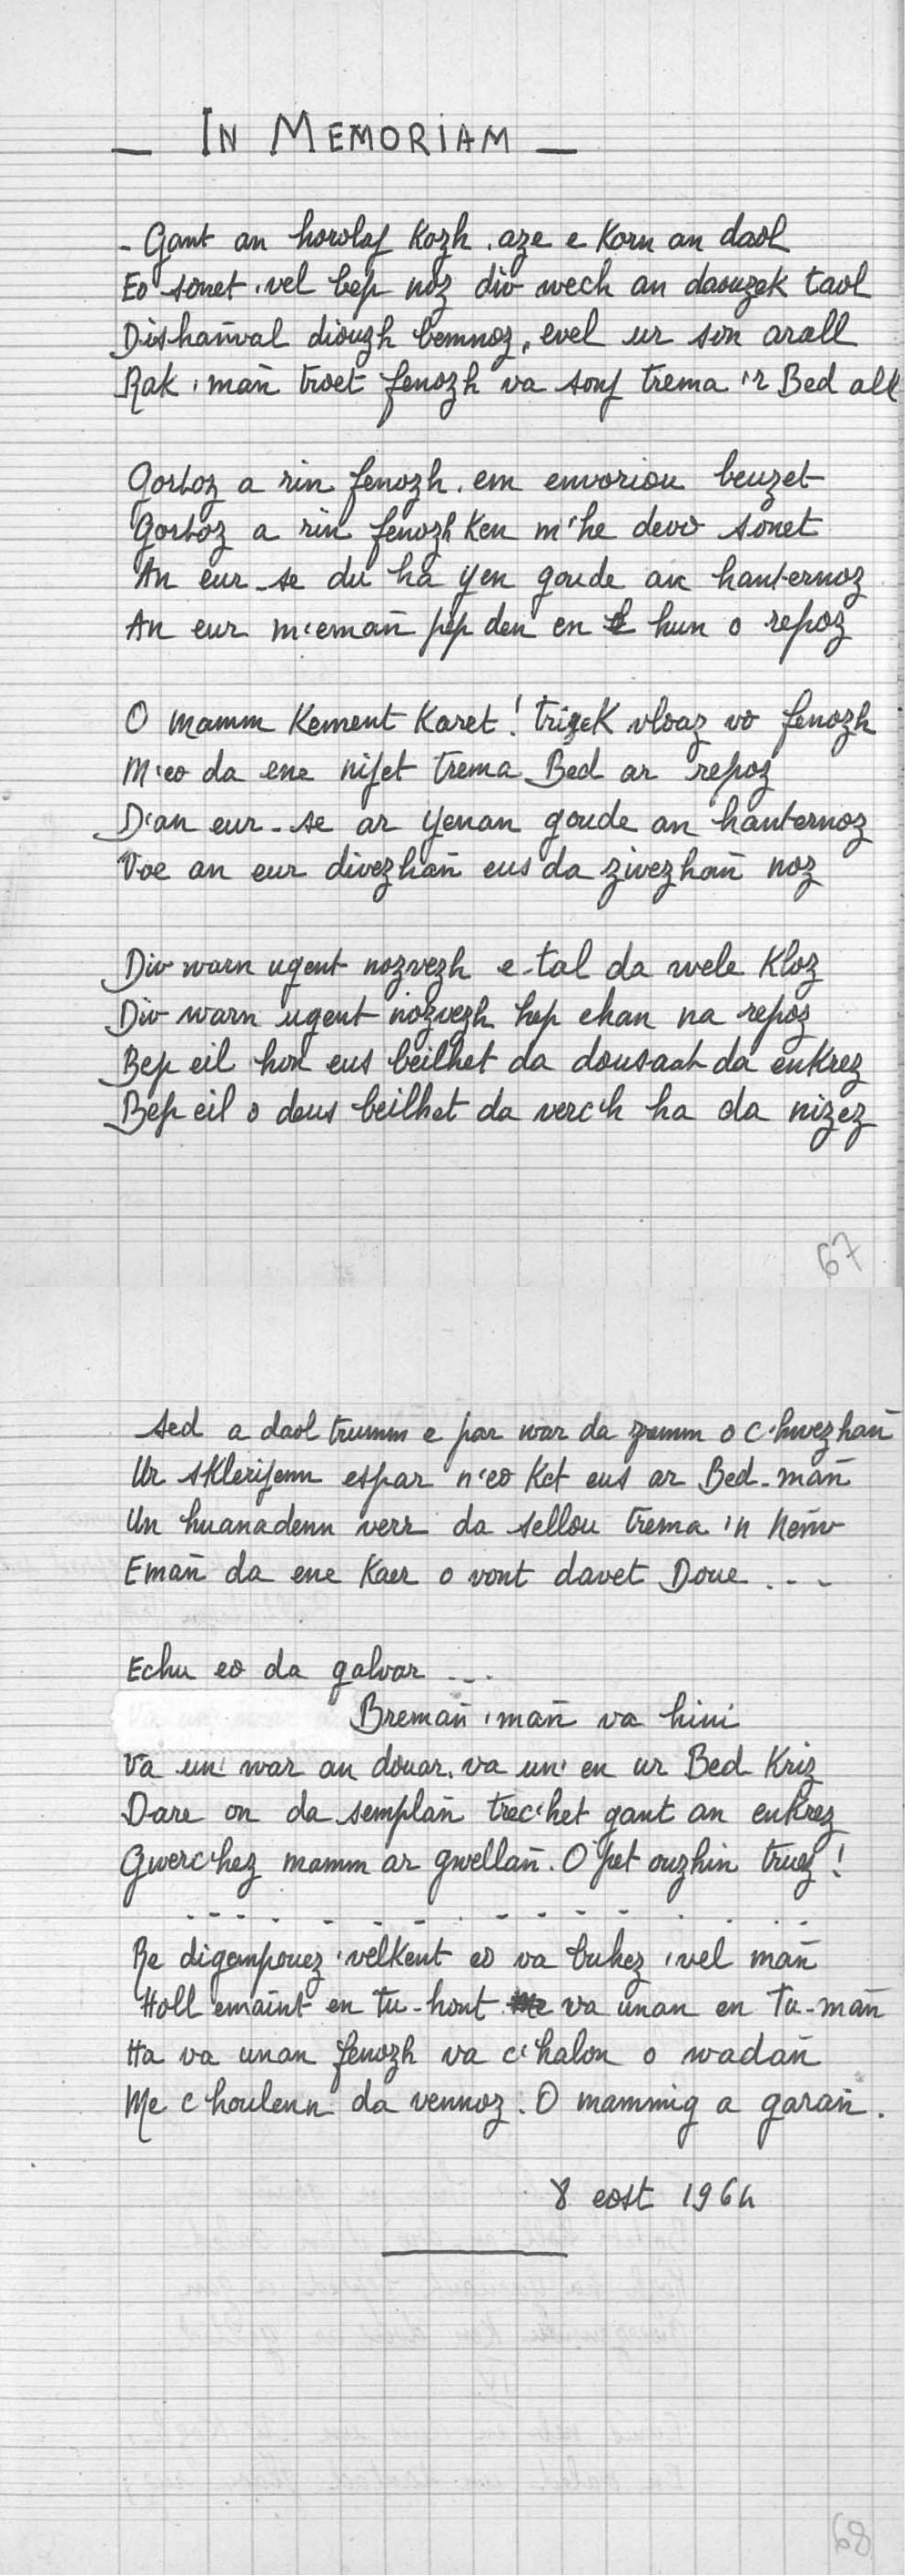 _ IN MEMORIAM _
- Gant an horolaj kozh, aze e korn an daol
Eo sonet 'vel bep noz div wech an daouzek taol
Disheñval diouzh bemnoz, evel ur son arall
Rak 'mañ troet fenozh va sonj trema 'r Bed all
Gortoz a rin fenozh, em envoriou beuzet
Gortoz a rin fenozh ken m'he devo sonet
An eur-se du ha yen goude an hanternoz
An eur m'emañ pep den en e hun o repoz
O mamm kement karet! trizek vloaz vo fenozh
M'eo da ene nijet trema Bed ar repoz
D'an eur-se ar yenan goude an hanternoz
Voe an eur divezhañ eus da zivezhañ noz
Div warn ugent nozvezh e-tal da wele kloz
Div warn ugent nozvezh hep ehan na repoz
Bep eil hon eus beilhet da dousaat da enkrez
Bep eil o deus beilhet da verc'h ha da nizez
67
Sed a daol trumm e par war da zremm o c'hwezhañ
Ur sklerijenn espar n'eo ket eus ar Bed-mañ
Un huanadenn verr da sellou trema 'n Neñv
Emañ da ene kaer o vont davet Doue ...
Echu eo da galvar ...
Bremañ 'mañ va hini
Va un' war an douar, va un' en ur Bed kriz
Dare on da semplañ trec'het gant an enkrez
Gwerc'hez mamm ar gwellañ. O pet ouzhin truez!
. . . . . . . . . . . . . . .
Re digempouez 'velkent eo va buhez 'vel mañ
Holl emaint en tu-hont va unan en tu-mañ
Ha va unan fenozh va c'halon o wadañ
Me c'houlenn da vennoz. O mammig a garañ.
8 eost 1964
68